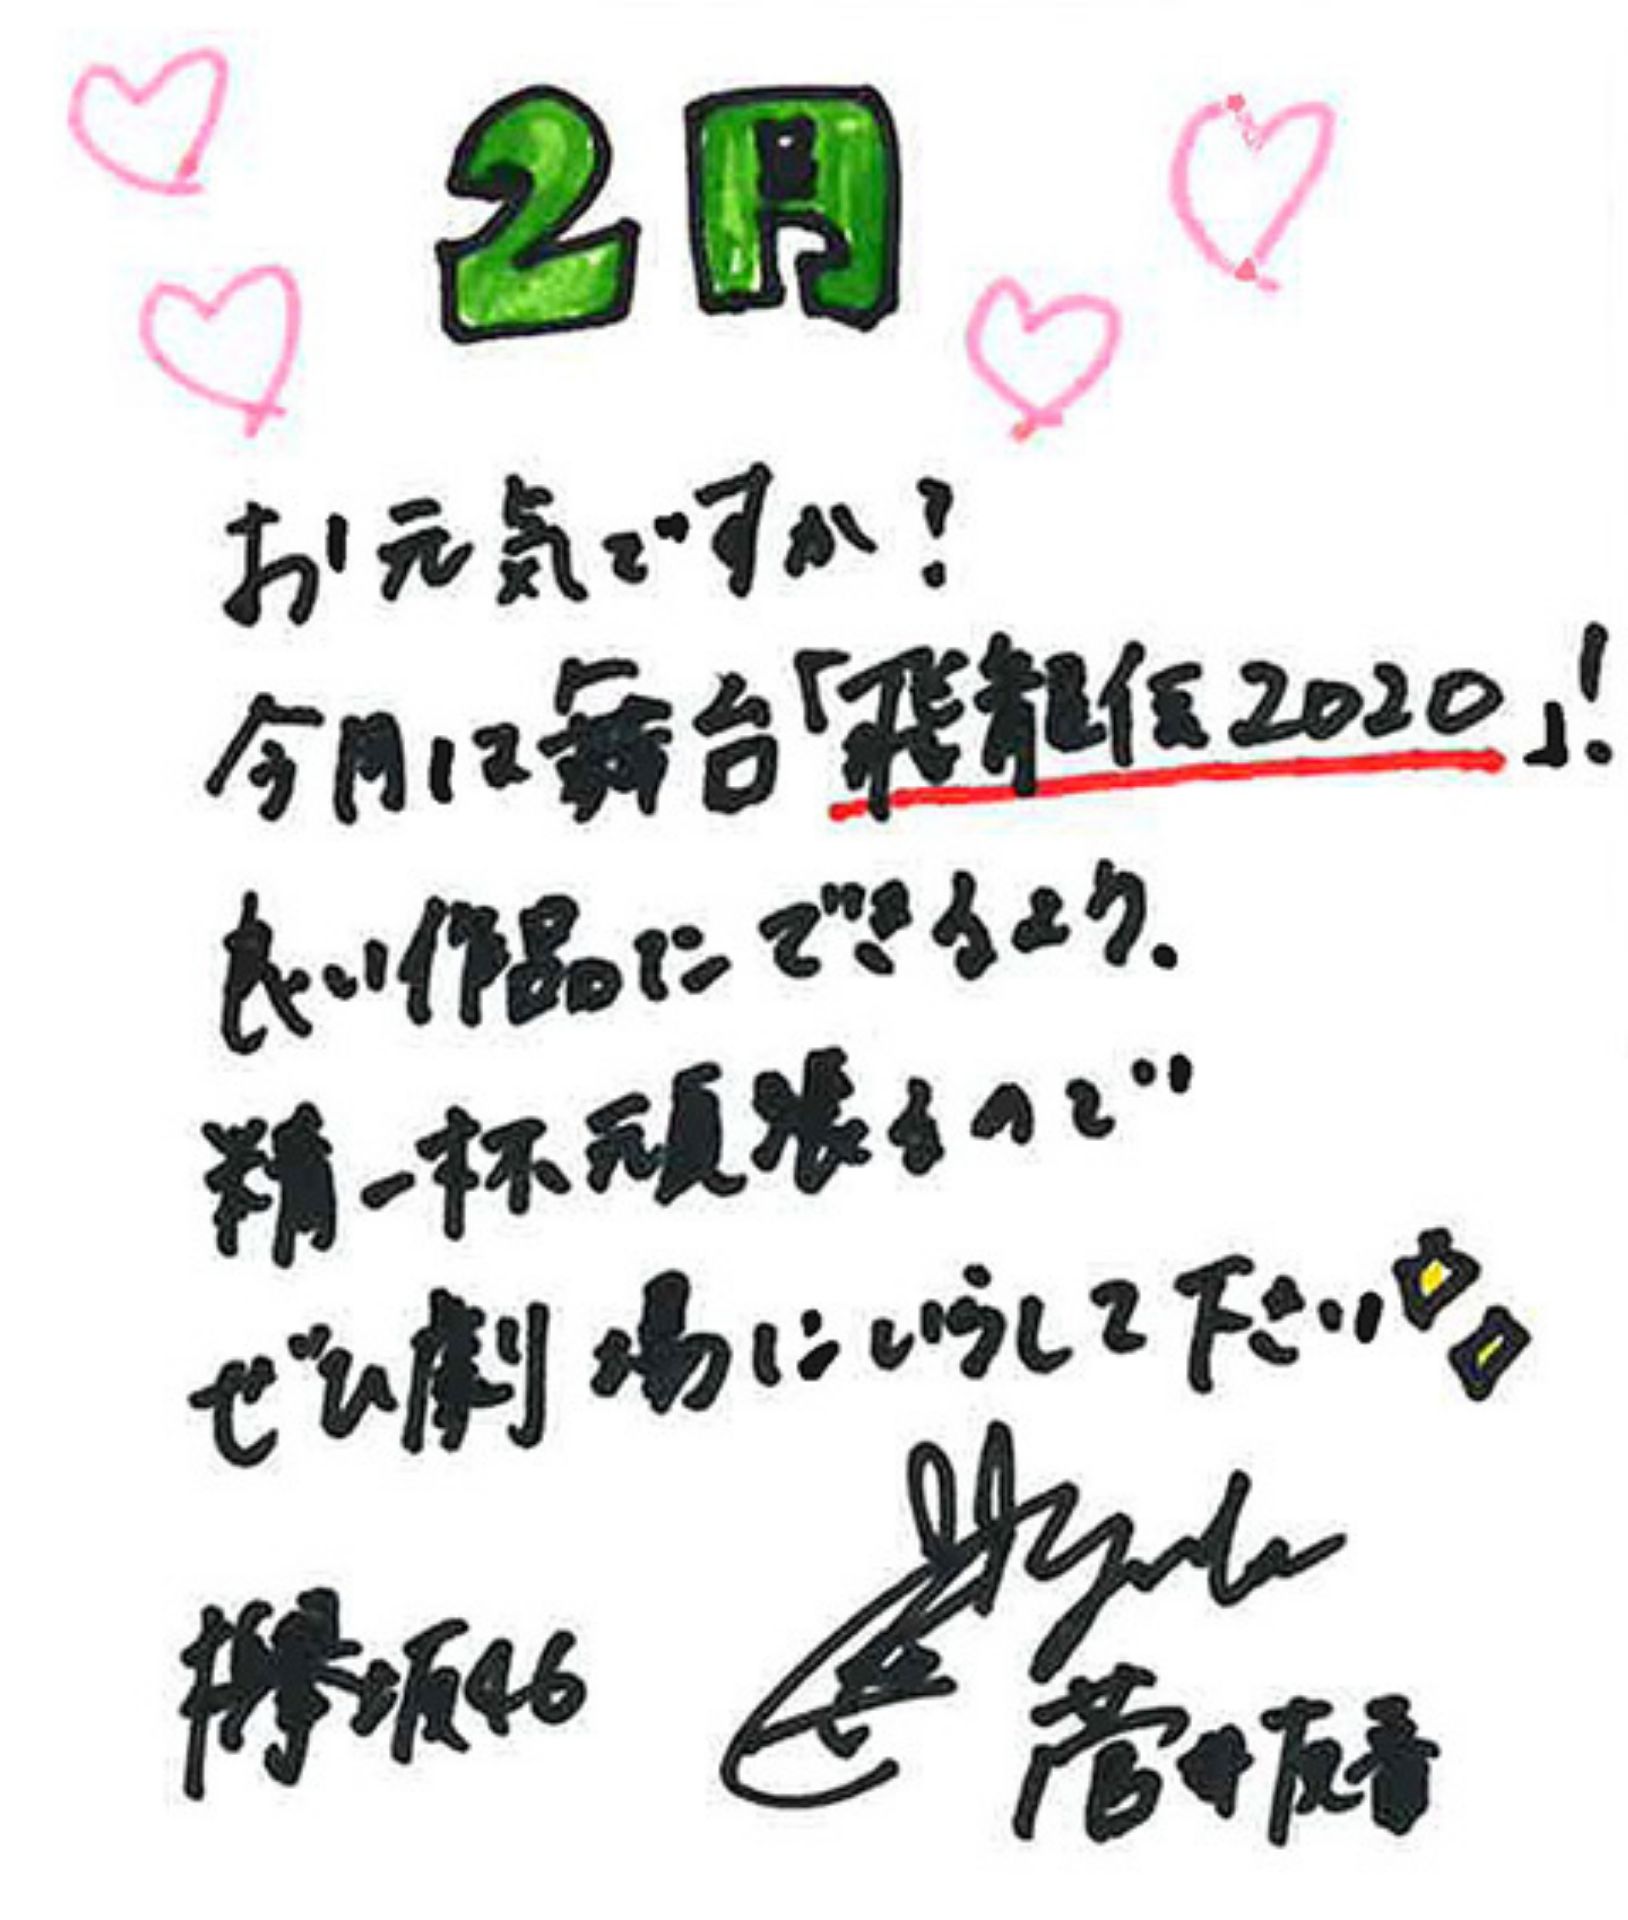 2月
お元気ですか?
今月は舞台「飛龍伝2020」!
良い作品にできるよう、
精一杯頑張るので
ぜひ劇場にいらして下さい
欅坂46
菅井友香